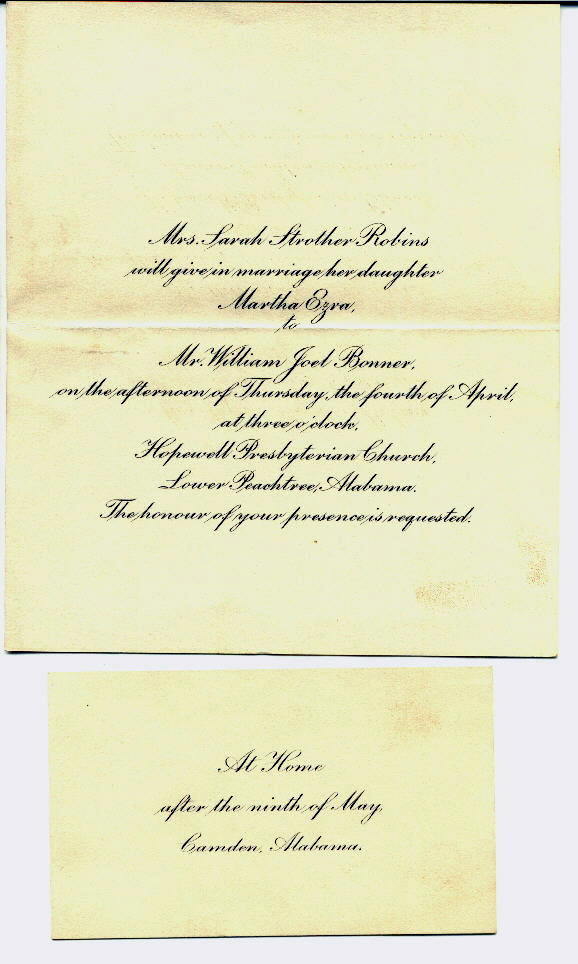 Mrs. Sarah Strother Robins
will give in marriage her daughter
Martha Ezra,
to
Mr. William Joel Bonner,
on the afternoon of Thursday, the fourth of April,
at three o'clock,
Hopewell Presbyterian Church,
Lower Peachtree, Alabama.
The honour of your presence is requested.
At Home
after the ninth of May,
Camden, Alabama.